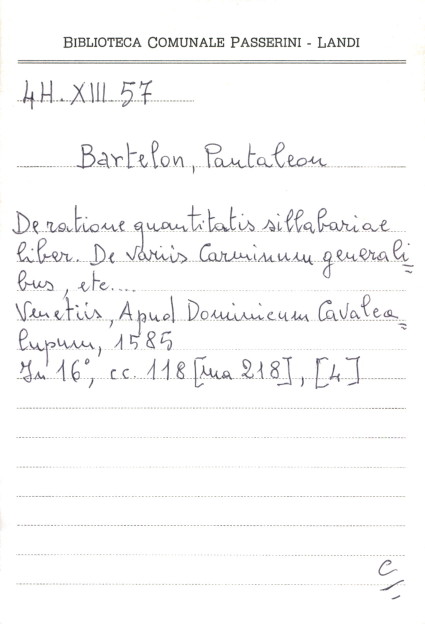 BIBLIOTECA COMUNALE PASSERINI - LANDI
4H. XIII. 57
Bartelon, Pantaleon
De ratione quantitatis sillabariae
liber. De variis Carminum generali=
bus, etc....
Venetiis, Apud Dominicum Cavalca=
lupum, 1585
In 16°, cc. 118 [ma 218], [4]
C